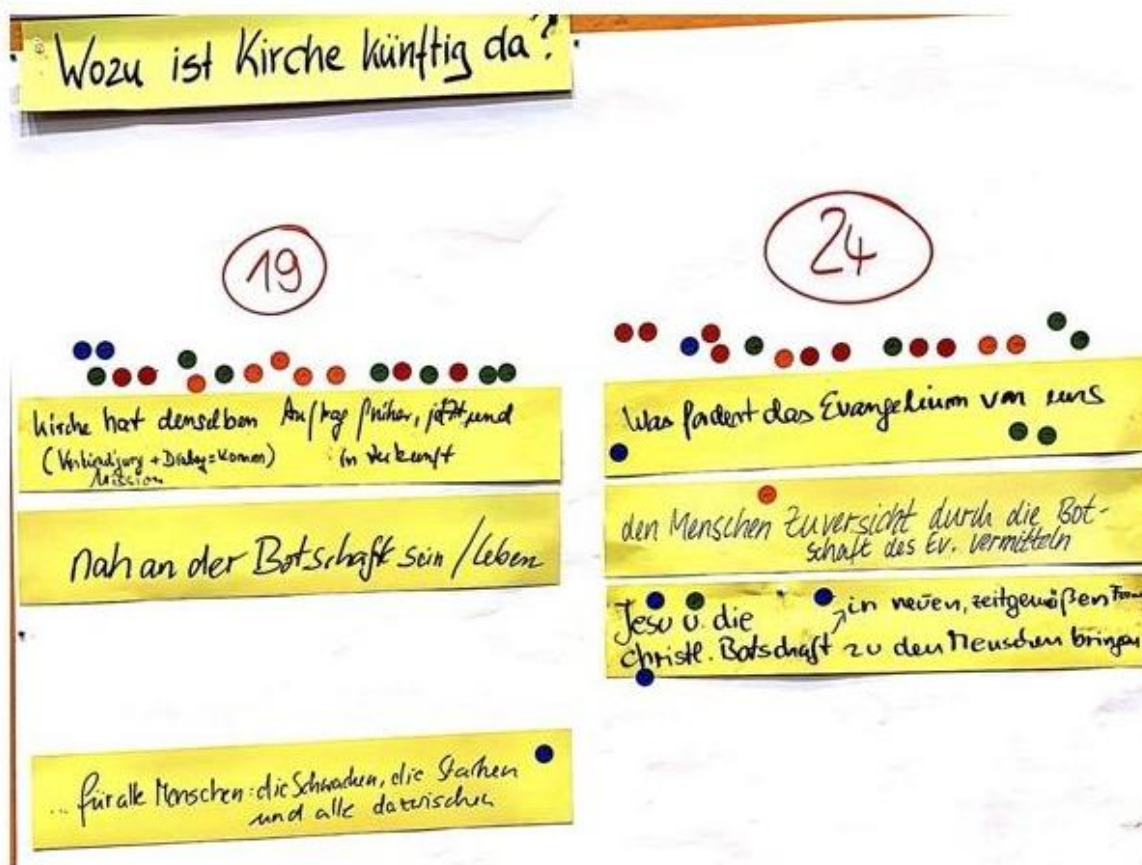 Wozu ist Kirche künftig da?
19
Kirche hat denselben Auftrag früher, jetzt und
(Verkündigung + Dialog = Komen) in Zukunft
Mission
nah an der Botschaft sein / leben
... für alle Menschen: die Schwachen, die Starken
und alle dazwischen
24
Was fordert das Evangelium von uns
den Menschen Zuversicht durch die Bot-
schaft des Ev. vermitteln
Jesu u. die in neuen, zeitgemäßen
christl. Botschaft zu den Menschen bringen